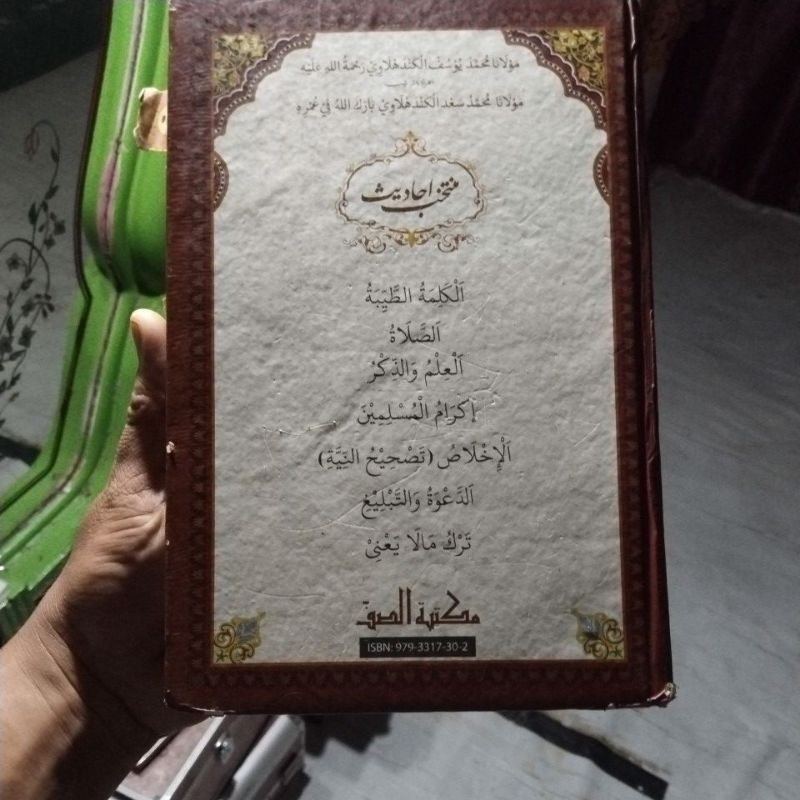 مَوْلَانَا مُحَمَّدْ يُوْسُفْ اَلْكَانْدَهْلَوِيْ رَحْمَةُ اللهِ عَلَيْهِ
مَوْلَانَا مُحَمَّدْ سَعْد اَلْكَانْدَهْلَوِيْ بَارَكَ اللهُ فِيْ عُمْرِهِ
منتخب احادیث
اَلْكَلِمَةُ الطَّيِّبَةُ
اَلصَّلَاةُ
اَلْعِلْمُ وَالذِّكْرُ
إِكْرَامُ الْمُسْلِمِيْنَ
اَلْإِخْلَاصُ (تَصْحِيْحُ النِّيَّةِ)
اَلدَّعْوَةُ وَالتَّبْلِيْغِ
تَرْكُ مَالَا يَعْنِيْ
مكتبة الصفّ
ISBN: 979-3317-30-2